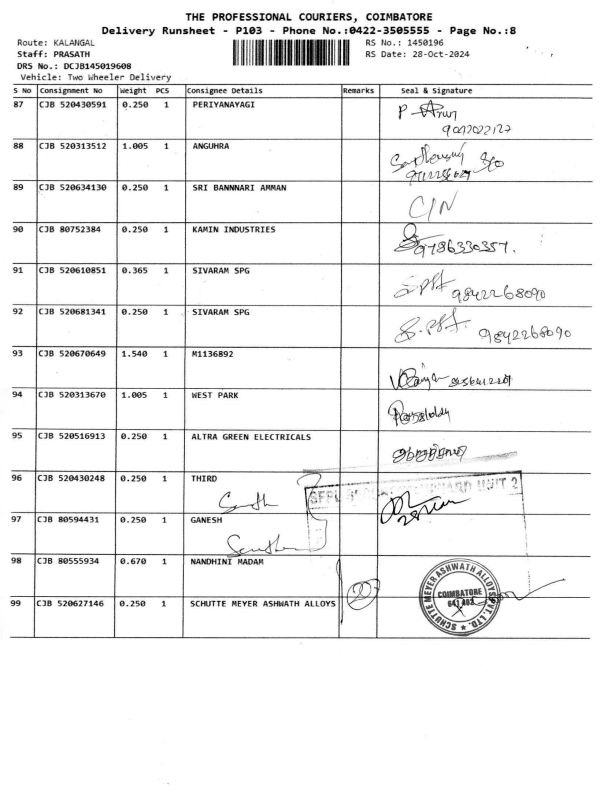 THE PROFESSIONAL COURIERS, COIMBATORE
Delivery Runsheet - P103 - Phone No.:0422-3505555 - Page No.:8
Route: KALANGAL
RS No.: 1450196
Staff: PRASATH
RS Date: 28-Oct-2024
DRS No.: DCJB145019608
Vehicle: Two Wheeler Delivery
S No Consignment No Weight PCS Consignee Details Remarks Seal & Signature
87 CJB 520430591 0.250 1 PERIYANAYAGI
88 CJB 520313512 1.005 1 ANGUHRA
89 CJB 520634130 0.250 1 SRI BANNNARI AMMAN
C/N
90 CJB 80752384 0.250 1 KAMIN INDUSTRIES
9786330357.
91 CJB 520610851 0.365 1 SIVARAM SPG
9842268090
92 CJB 520681341 0.250 1 SIVARAM SPG
9842268090
93 CJB 520670649 1.540 1 M1136892
94 CJB 520313670 1.005 1 WEST PARK
95 CJB 520516913 0.250 1 ALTRA GREEN ELECTRICALS
96 CJB 520430248 0.250 1 THIRD
UNIT 2
97 CJB 80594431 0.250 1 GANESH
98 CJB 80555934 0.670 1 NANDHINI MADAM
2
99 CJB 520627146 0.250 1 SCHUTTE MEYER ASHWATH ALLOYS
SCHUTTE MEYER ASHWATH ALLOYS PVT. LTD.
COIMBATORE
641 403